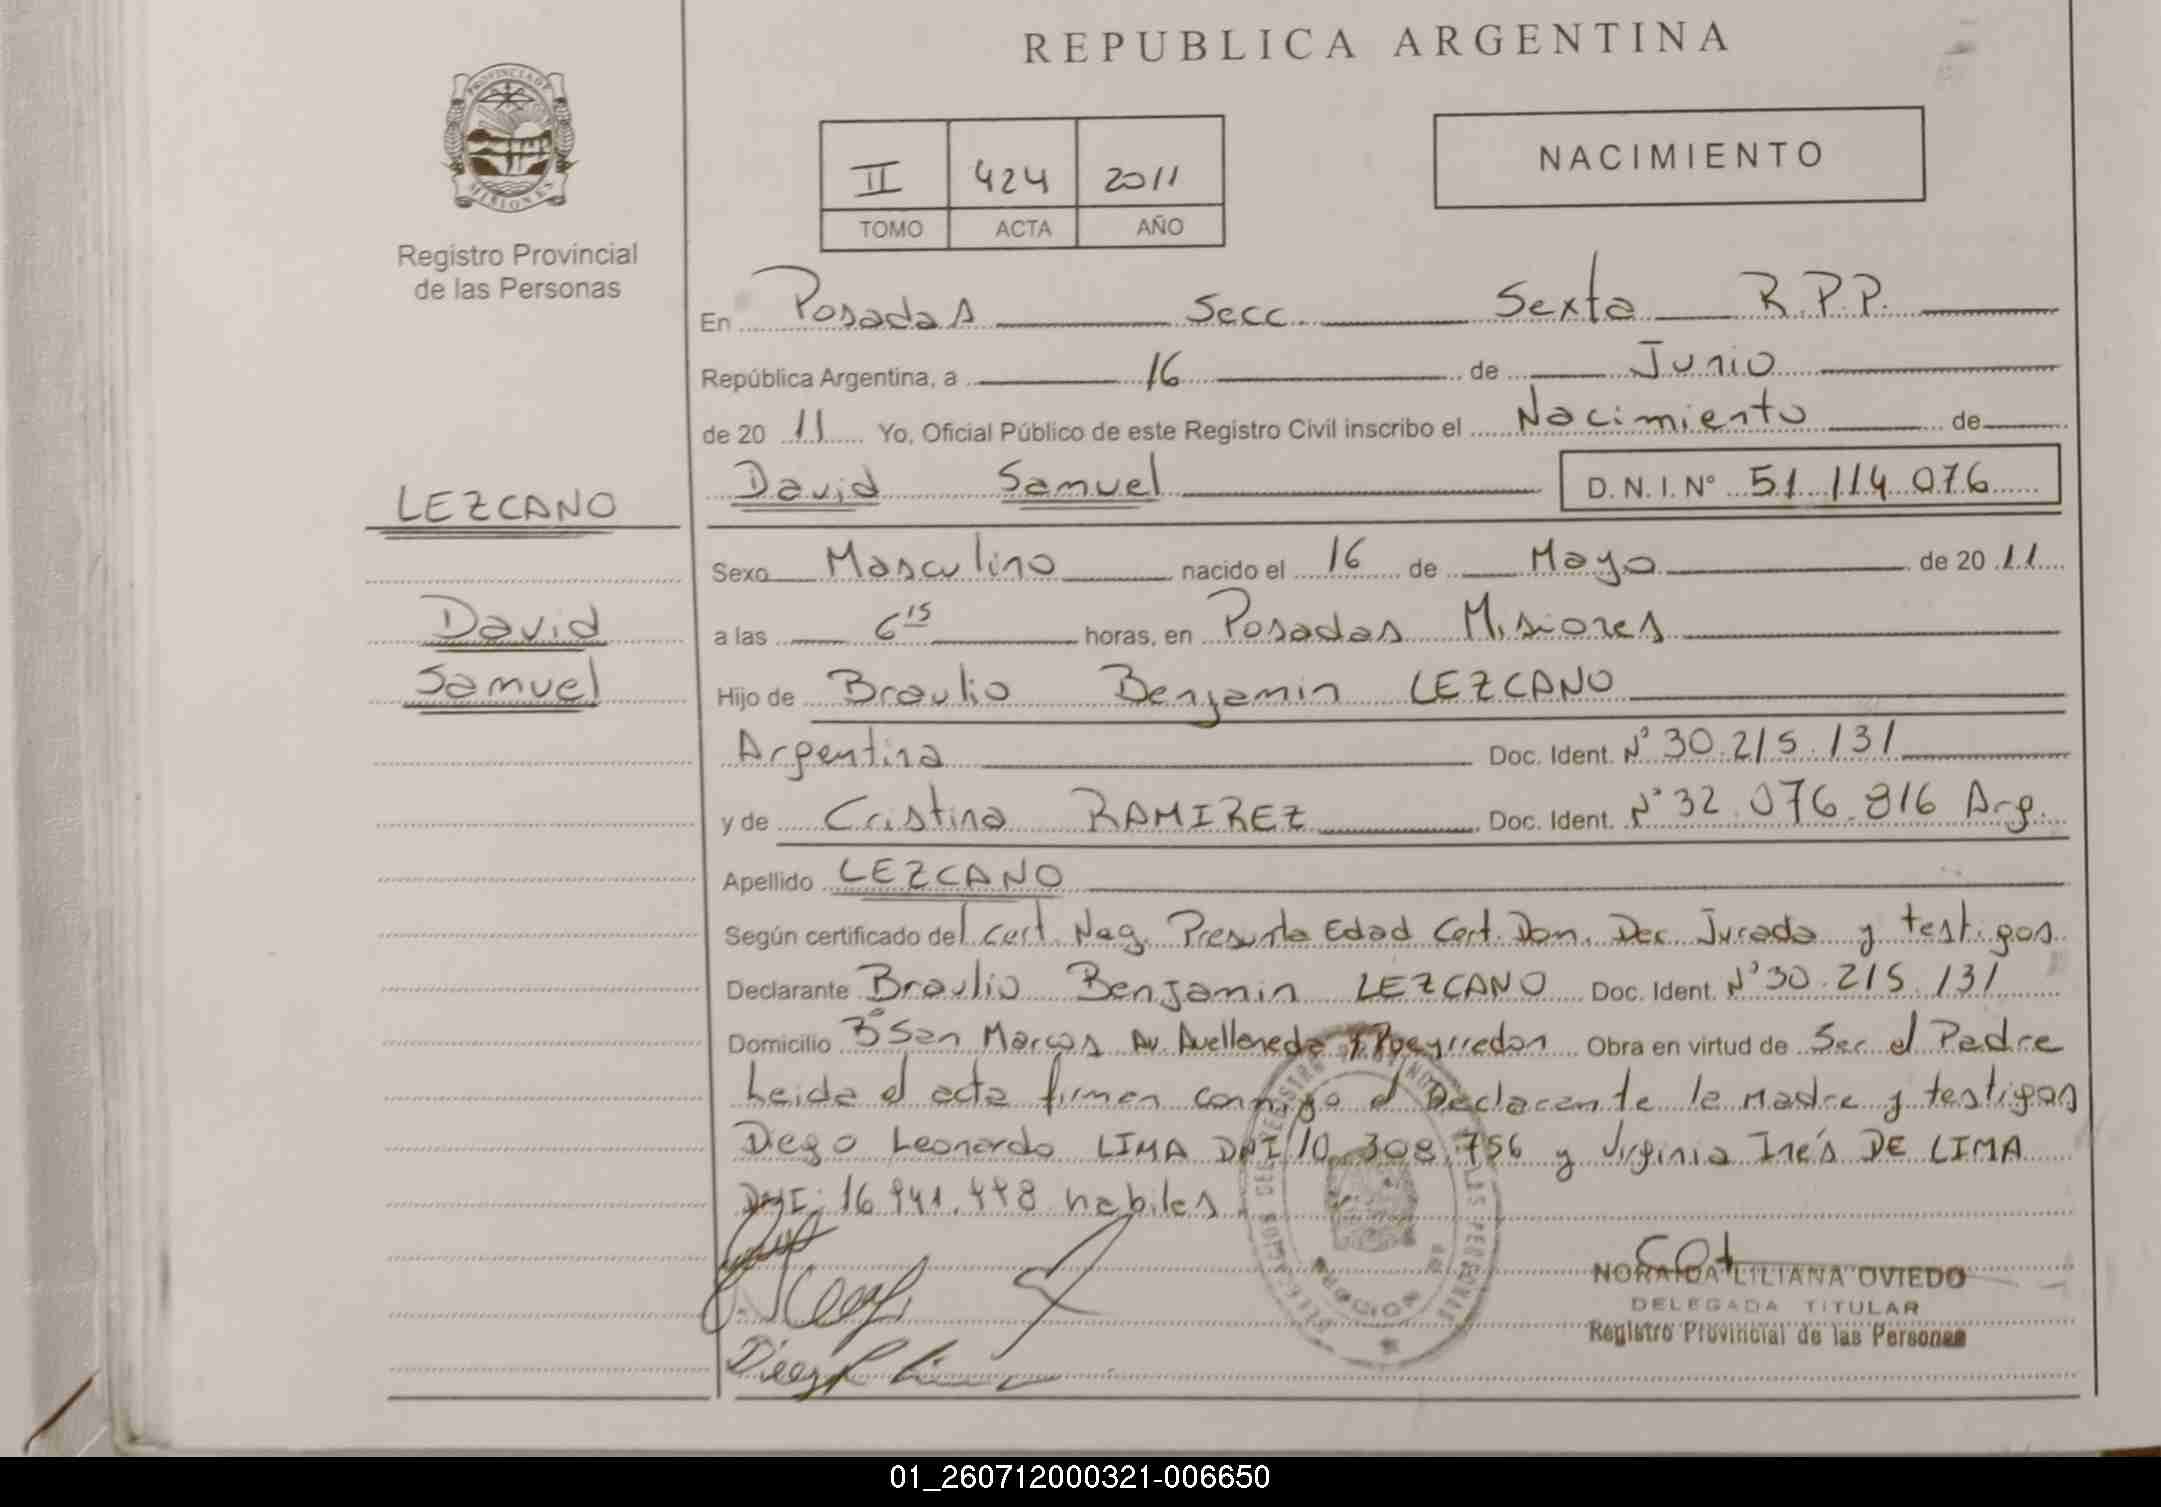 REPUBLICA ARGENTINA
PROVINCIA DE
MISIONES
Registro Provincial
de las Personas
II 424 2011
TOMO ACTA AÑO
NACIMIENTO
En Posadas Secc. Sexta R.P.P.
República Argentina, a 16 de Junio
de 20 11 Yo, Oficial Público de este Registro Civil inscribo el Nacimiento de
David Samuel D.N.I. N° 51.114.076
LEZCANO
David
Samuel
Sexo Masculino nacido el 16 de Mayo de 20 11
a las 6 15 horas, en Posadas Misiones
Hijo de Braulio Benjamin LEZCANO
Argentina Doc. Ident. N° 30.215.131
y de Cristina RAMIREZ Doc. Ident. N° 32.076.816 Arg.
Apellido LEZCANO
Según certificado del Cert. Neg. Presunta Edad Cert. Dom. Dec. Jurada y testigos
Declarante Braulio Benjamin LEZCANO Doc. Ident. N° 30.215.131
Domicilio B° San Marcos Av. Avellaneda y Pueyrredon Obra en virtud de Ser el Padre
Leida el acta firman conmigo el Declarante la Madre y testigos
Diego Leonardo LIMA DNI 10.308.756 y Virginia Inés DE LIMA
DNI: 16.941.448 habiles
NORAIDA LILIANA OVIEDO
DELEGADA TITULAR
Registro Provincial de las Personas
01_260712000321-006650